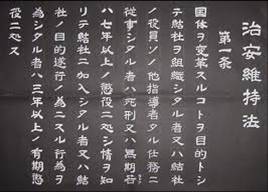 治安維持法
第一条
国体ヲ変革スルコトヲ目的トシ
テ結社ヲ組織シタル者又ハ結社
ノ役員ソノ他指導者タル任務ニ
従事シタル者ハ死刑又ハ無期若
ハ七年以上ノ懲役ニ処シ情ヲ知
リテ結社ニ加入シタル者又ハ結
社ノ目的遂行ノ為ニスル行為ヲ
為シタル者ハ三年以上ノ有期懲
役ニ処ス